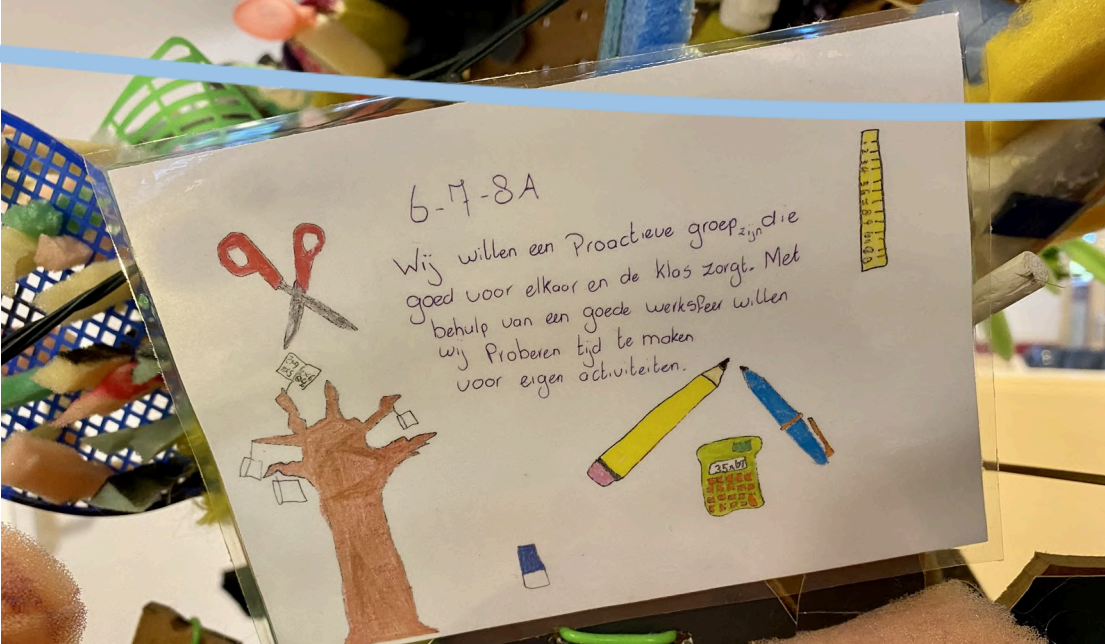 6-7-8A
Wij willen een Proactieve groep zijn die
goed voor elkaar en de klas zorgt. Met
behulp van een goede werksfeer willen
wij Proberen tijd te maken
voor eigen activiteiten.